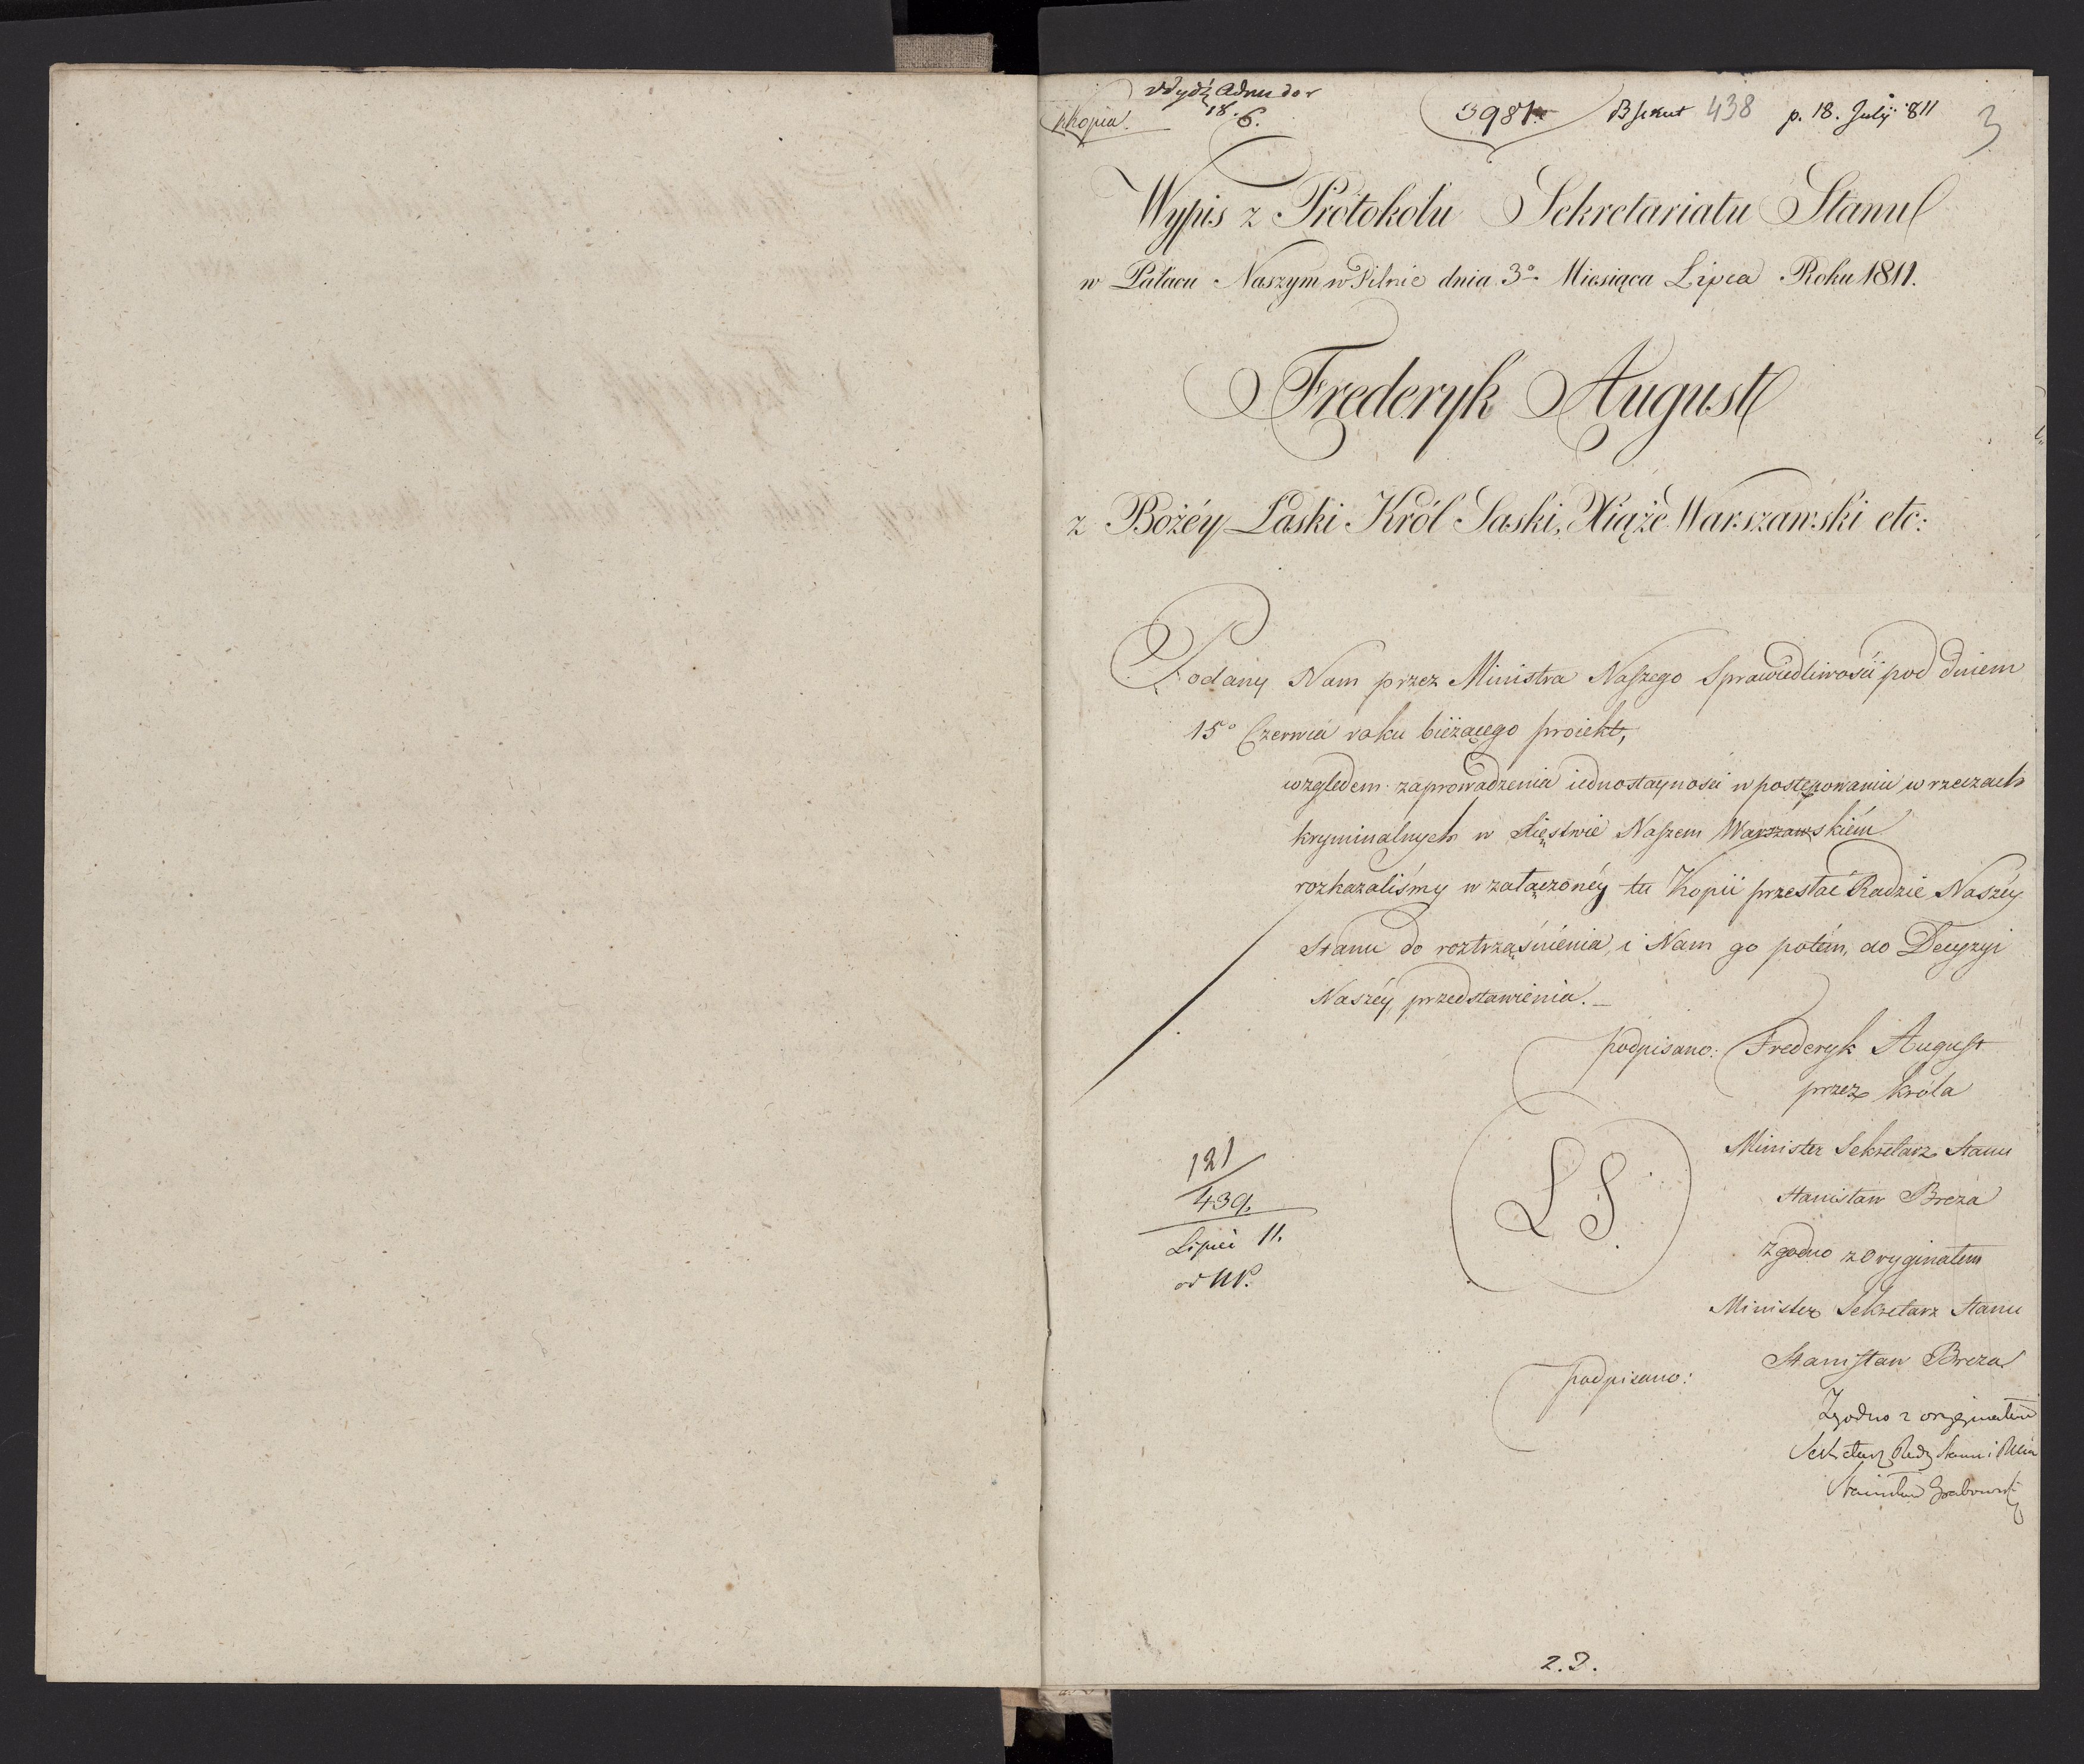 Kopia.
18. 6.
3981
438 p. 18. July 811
3
Wypis z Protokolu Sekretariatu Stanu
w Pałacu Naszym w Pilnic dnia 3º Miesiąca Lipca Roku 1811.
Frederyk August
z Bożéy Łaski Król Saski, Xiąże Warszawski etc:
Podany Nam przez Ministra Naszego Sprawiedliwości pod dniem
15º Czerwca roku bieżącego proiekt,
względem zaprowadzenia iednostayności w postępowaniu w rzeczach
kryminalnych w Xięstwie Naszem Warszawskiém
rozkazaliśmy w załączonéy tu Kopii przesłać Radzie Naszéy
Stanu do roztrząśnienia, i Nam go potém, do Decyzyi
Naszéy, przedstawienia. _
podpisano: Frederyk August
przez króla
Minister Sekretarz Stanu
Stanisław Breza
LS
zgodno z Oryginałem
Minister Sekretarz Stanu
podpisano: Stanisław Breza
Zgodno z oryginałem
Sekretarz Rady Stanu i Min
Stanisław Grabowski
121
439.
Lipiec 11.
2.3.